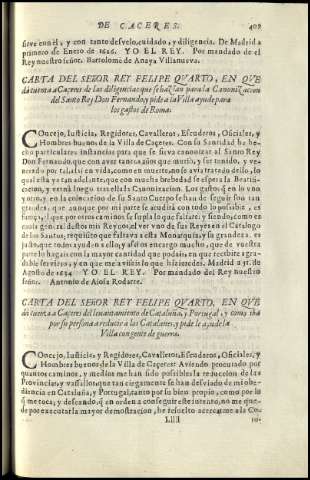 DE CACERES. 409
sirve con èl, y con tanto desvelo, cuidado, y diligencia. De Madrid a
primero de Enero de 1626. YO EL REY. Por mandado de el
Rey nuestro señor. Bartolomè de Anaya Villanueva.
CARTA DEL SEÑOR REY FELIPE QVARTO, EN QVE
dà cuenta a Caceres de las diligencias que se hazian para la Canonizacion
del Santo Rey Don Fernando, y pide a la Villa ayude para
los gastos de Roma.
Concejo, Iusticia, Regidores, Cavalleros, Escuderos, Oficiales, y
Hombres buenos de la Villa de Caceres. Con su Santidad he he-
cho particulares instancias para que se sirva canonizar al Santo Rey
Don Fernando, que con aver tantos años que murió, y ser tenido, y ve-
nerado por tal, assi en vida, como en muerte, no se avia tratado dello, lo
qual està ya tan adelante, que con mucha brevedad se espera la Beatifi-
cacion, y vendrà luego tras ella la Canonizacion. Los gastos que en lo vno
y otro, en la colocacion de su Santo Cuerpo se han de seguir son tan
grandes, que aunque por mi parte se acudirà con todo lo possible, es
fuerça, que por otros caminos se supla lo que faltare; y siendo, como en
causa general destos mis Reynos, el ver vno de sus Reyes en el Catalogo
de los Santos, requisito que faltava a esta Monarquia, y su grandeza, es
justo, que todos ayuden a ello, y assi os encargo mucho, que de vuestra
parte lo hagais con la mayor cantidad que podais, en que recibirè agra-
dable servicio, y en que me aviseis lo que hizieredes. Madrid a 31. de
Agosto de 1634. YO EL REY. Por mandado del Rey nuestro
señor. Antonio de Alosa Rodarte.
CARTA DEL SEÑOR REY FELIPE QVARTO, EN QVE
dà cuenta a Caceres del levantamiento de Cataluña, y Portugal, y como iba
por su persona a reducir a los Catalanes, y pide le ayude la
Villa con gente de guerra.
Concejo, Iusticia, y Regidores, Cavalleros, Escuderos, Oficiales, y
Hombres buenos de la Villa de Caceres: Aviendo procurado por
quantos caminos, y medios me han sido possibles la reduccion de las
Provincias, y vassallos, que tan ciegamente se han desviado de mi obe-
diencia en Cataluña, y Portugal, tanto por su bien propio, como por lo
que me toca, y deseando, que en orden a conseguir este intento, no me que-
de por executar la mayor demostracion, he resuelto acercarme a la Co-
Llll ro-